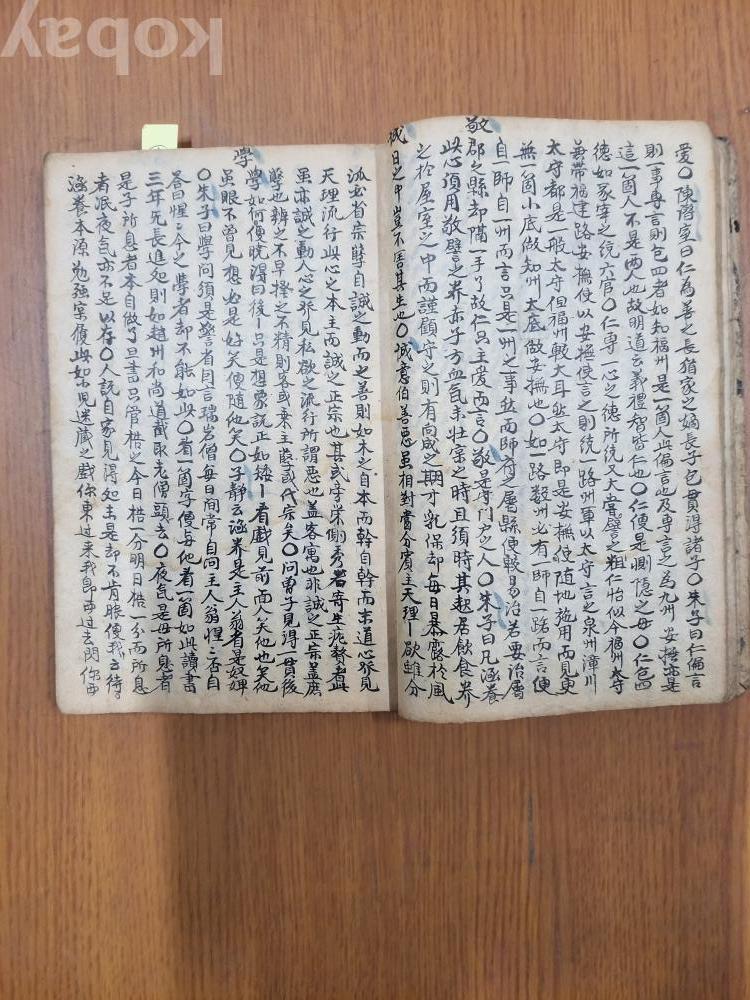 Kobay
敬
愛〇陳潛室曰仁爲善之長猶家之嫡長子包貫得諸子〇朱子曰仁偏言
則一事專言則包四者如知福州是一箇人此偏言也及專言之爲九州安撫亦是
這一箇人不是兩人也故明道云義禮智皆仁也〇仁便是惻隱之母〇仁包四
德如冢宰之統六官〇仁專一心之德所統又大嘗譬之粗仁恰似今福州太守
兼帶福建路安撫使以安撫使言之則統一路州軍以太守言之泉州漳川
太守都是一般太守但福州較大耳然太守即是安撫使隨地施用而見更
無一箇小底做知州大底做安撫也〇如一路數州必有一帥自一路而言便
自帥自一州而言只是一州之事然而帥府之屬縣便較易治若要治屬
郡之縣却隔一手了故仁只主愛而言〇敬是守門戶之人〇朱子曰凡涵養
此心須用敬譬之養赤子方血氣未壯實之時且須時其起居飲食養
之於屋室之中而謹顧守之則有向成之期才乳保却每日暴露於風
日之中豈不害其生也〇誠意伯善惡雖相對當分賓主天理人欲雖分
誠
學
派必省宗孼自誠之動而之善則如木之自本而幹自幹而末道心發見
天理流行此心之本主而誠之正宗也其或旁榮側秀若寄生疣贅者此
雖亦誠之動人心之發見私欲之流行所謂惡也盖客寓也非誠之正宗盖庶
孼也辨之不早擇之不精則客或乘主孼或代宗矣〇問曾子見得一貫後
學如何便曉得曰後人只是想象說正如矮人看戲見前面人笑他也笑他
雖眼不曾見想必是好笑便隨他笑〇子靜云涵養是主人翁省是奴婢
〇朱子曰學問須是警省因言瑞岩僧每日間常自問主人翁惺惺否自
答曰惺惺今之學者却不能如此〇看一箇字便與他看一箇如此讀書
三年无長進處則如趙州和尚道截取老僧頭去〇夜氣是母所息者
是子所息者本自微了旦晝只管梏之今日梏一分明日梏一分而所息
者泯夜氣亦不足以存〇人說自家見得如未是却不肯賬便我云待
涵養本源勉强實履此如小兒迷藏之戲你東過来我卽西過去閃你西